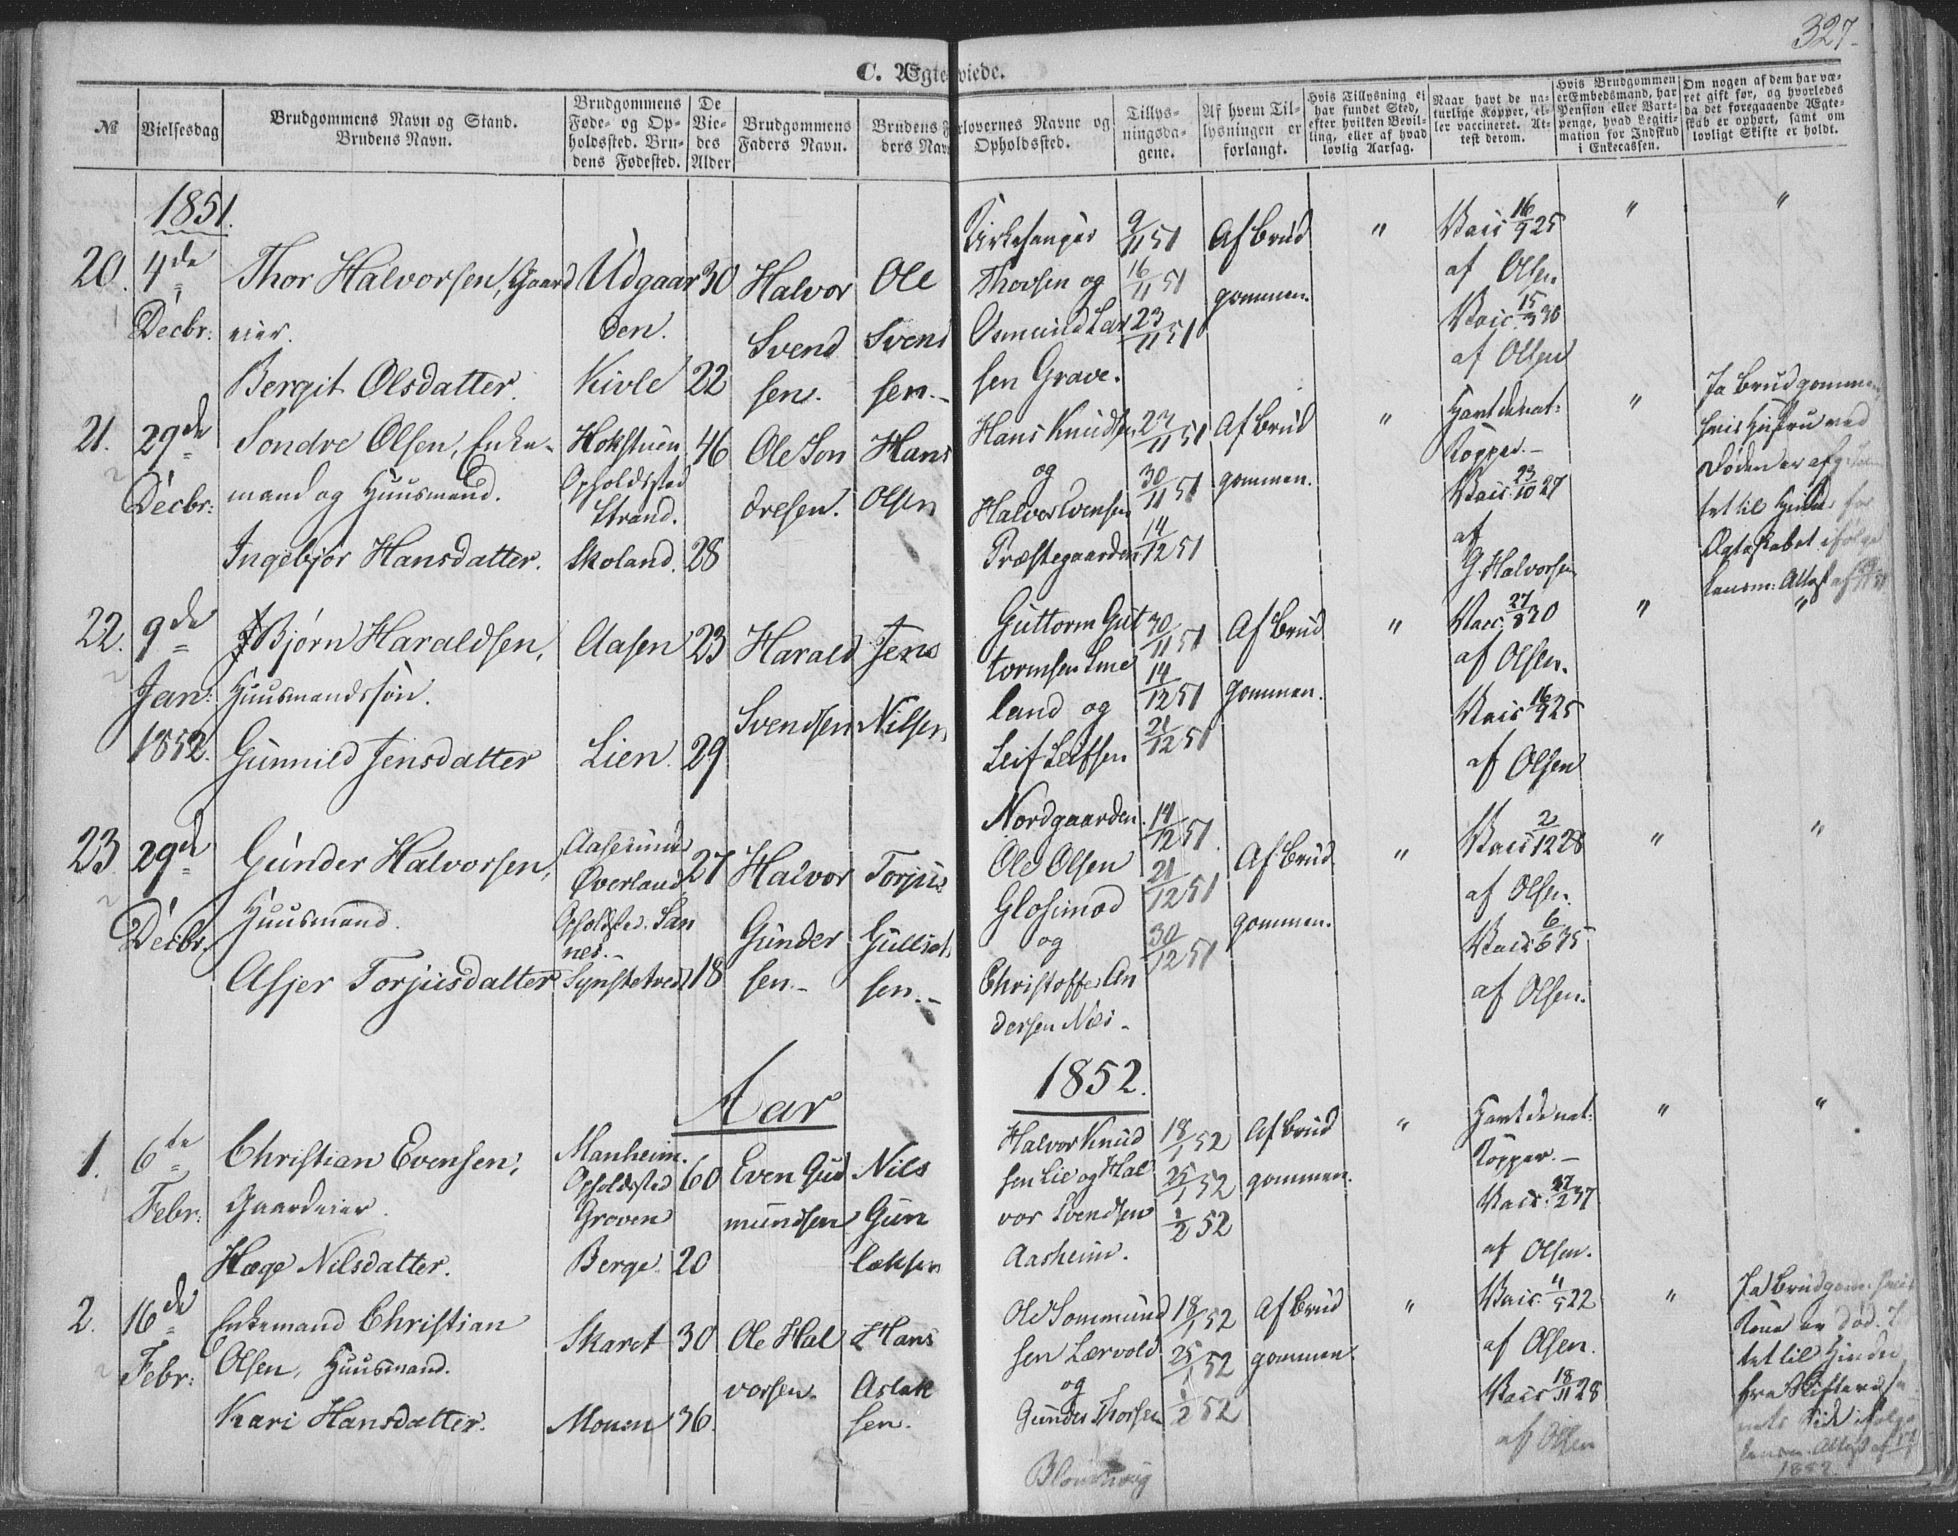 327.
C. Ægteviede.
№
Vielsesdag
Brudgommens Navn og Stand.
Brudens Navn.
Brudgommens
Føde- og Op-
holdssted. Bru-
dens Fødested.
De
Vie-
des
Alder
Brudgommens
Faders Navn.
Brudens Fa
ders Navn
rlovernes Navne og
Opholdssted.
Tillys-
ningsda-
gene.
Af hvem Til-
lysningen er
forlangt.
Hvis Tillysning ei
har fundet Sted,
efter hvilken Bevil-
ling, eller af hvad
lovlig Aarsag.
Naar havt de na-
turlige Kopper, el-
ler vaccineret. At-
test derom.
Hvis Brudgommen
er Embedsmand, har
Pension eller Vart-
penge, hvad Legiti-
mation for Indskud
i Enkecassen.
Om nogen af dem har væ-
ret gift før, og hvorledes
da det foregaaende Ægte-
skab er ophørt, samt om
lovligt Skifte er holdt.
1851.
20. 4de Decbr:
Thor Halvorsen, Gaard
eier.
Bergit Olsdatter.
Udgaar
den.
Kivle
30
22
Halvor
Svend
sen.
Ole
Svend
sen.-
Kirkesanger
Thorsen og
Osmund Lar
sen Grave.
9/11 51
16/11 51
23/11 51
Af Brud
gommen.
"
Vacc 16/9 25
af Olsen.
Vacc. 15/3 30
af Olsen
"
"
21. 29de Decbr:
Sondre Olsen, Enke-
mand og Huusmand.
Ingebjør Hansdatter.
Hokstuen
Opholdssted
Strand.
Skoland.
46
28
Ole Son
dresen.
Hans
Olsen
Hans Knudsen
og
Halvor Evensen
Præstegaarden
23/11 51
30/11 51
14/12 51
Af Brud
gommen.
"
Havt de nat:
Kopper.-
Vacc. 23/10 27
af
G. Halvorsen
"
Ja Brudgommen
hvis Hustru ved
Døden er
tet til Hinder for
Ægteskabet ifølge
Lensm: Attest af
22. 9de Jan: 1852.
Bjørn Haraldsen,
Huusmandssøn.
Gunnild Jensdatter
Aasen
Lien.
23
29
Harald
Svendsen
Jens
Nilsen
Guttorm Gut
tormsen Lme
land og
Leif Leifsen
Nordgaarden.
30/11 51
14/12 51
21/12 51
Af Brud
gommen.
"
Vacc. 27/8 30
af Olsen.
Vacc 16/9 25
af Olsen
"
"
23 29de Decbr.
Gunder Halvorsen,
Huusmand.
Asjer Torjusdatter
Øverland
Opholdssted. San
nes.-
Synstetved
27
18
Halvor
Gunder
sen.-
Torjus
sen.-
Ole Olsen
Glosimod
og
Christoffer An
dersen Nes-
14/12 51.
21/12 51
30/12 51
Af Brud
gommen.
"
Vacc 2/12 28
af Olsen.
Vacc 6/6 35
af Olsen.
"
"
Aar 1852.
1. 6te Febr:
Christian Evensen,
Gaardeier.
Hæge Nilsdatter.
Manheim.
Opholdssted
Groven
Berge
60
20
Even Gud
mundsen
Nils
Gun
læksen
Halvor Knud
sen Lie og Hal
vor Svendsen
Aasheim.
18/1 52
25/1 52
1/2 52
Af Brud
gommen.
"
Havt de nat:
Kopper.-
Vacc. 27/2 37
af Olsen.
"
"
2. 16de Febr:
Enkemand Christian
Olsen, Huusmand.
Kari Hansdatter.
Skaret
Mouen
30
36.
Ole Hal
vorsen.
Hans
Aslak
sen.
Ole Sommund
sen Lærvold
og
Gunder Thorsen
18/1 52
25/1 52
1/2 52
Af Brud
gommen.
"
Vacc. 4/5 22
af Olsen.
Vacc 18/11 28
af Olsen
"
Ja Brudgom: hvis
Kone er død.
tet til Hinder
fra Skifteret
1852.